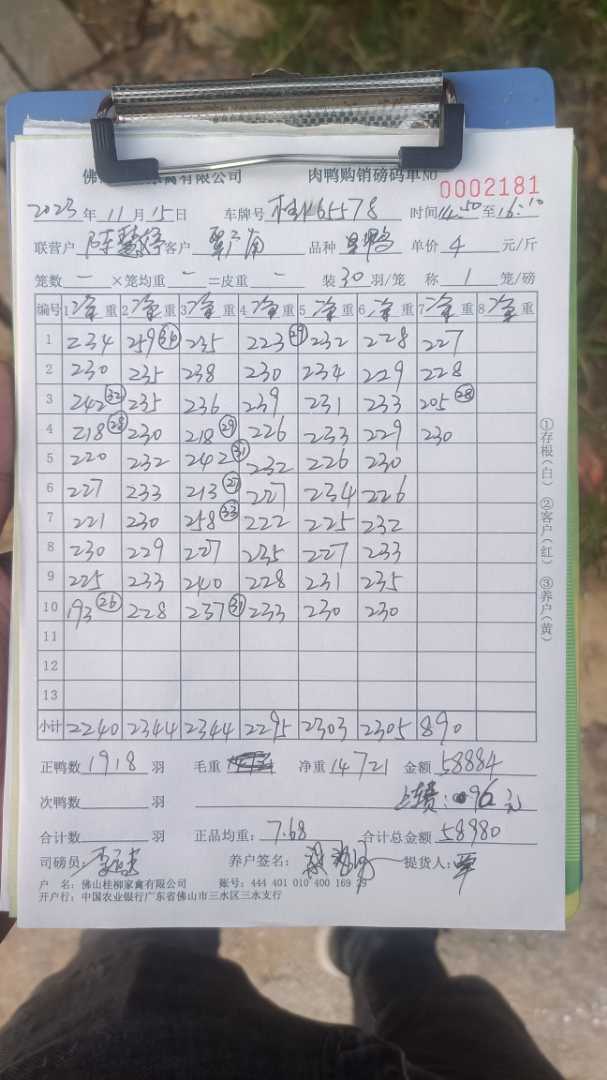 佛山 家禽有限公司 肉鸭购销磅码单NO 0002181
2023年11月15日 车牌号 桂K65578 时间14:50至16:10
联营户 陈慧婷 客户 品种 鸭 单价 4 元/斤
笼数 一 ×笼均重 一 =皮重 一 装30羽/笼 称 1 笼/磅
编号 1净重 2净重 3净重 4净重 5净重 6净重 7净重 8净重
1 234 259(36) 235 223(29) 232 228 227
2 230 235 238 230 234 229 228
3 242(32) 235 236 239 231 233 205(28)
4 218(28) 230 218(29) 226 233 229 230
5 220 232 242(31) 232 226 230
6 227 233 213(27) 227 234 226
7 221 230 258(33) 222 225 232
8 230 229 227 235 227 233
9 225 233 240 228 231 235
10 193(26) 228 237(31) 233 230 230
11
12
13
小计 2240 2344 2344 2295 2303 2305 890
①存根(白) ②客户(红) ③养户(黄)
正鸭数 1918 羽 毛重 净重 14721 金额 58884
次鸭数 羽 96元
合计数 羽 正品均重: 7.68 合计总金额 58980
司磅员: 养户签名: 提货人:
户 名: 佛山桂柳家禽有限公司 账号: 444 401 010 400 169 29
开户行: 中国农业银行广东省佛山市三水区三水支行